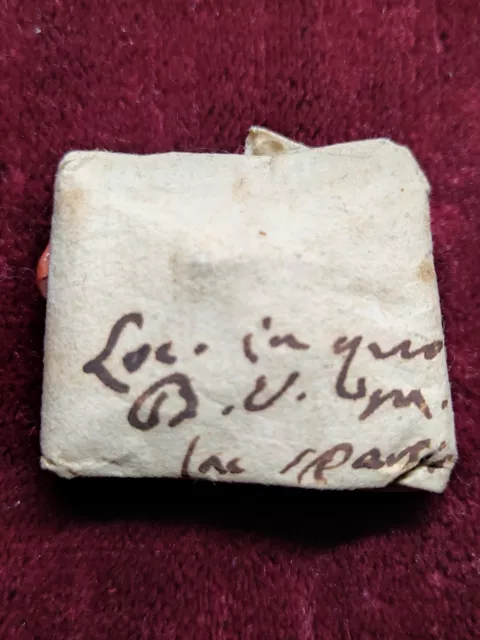 Loc. in quo
B. V. M.
lac sparsit